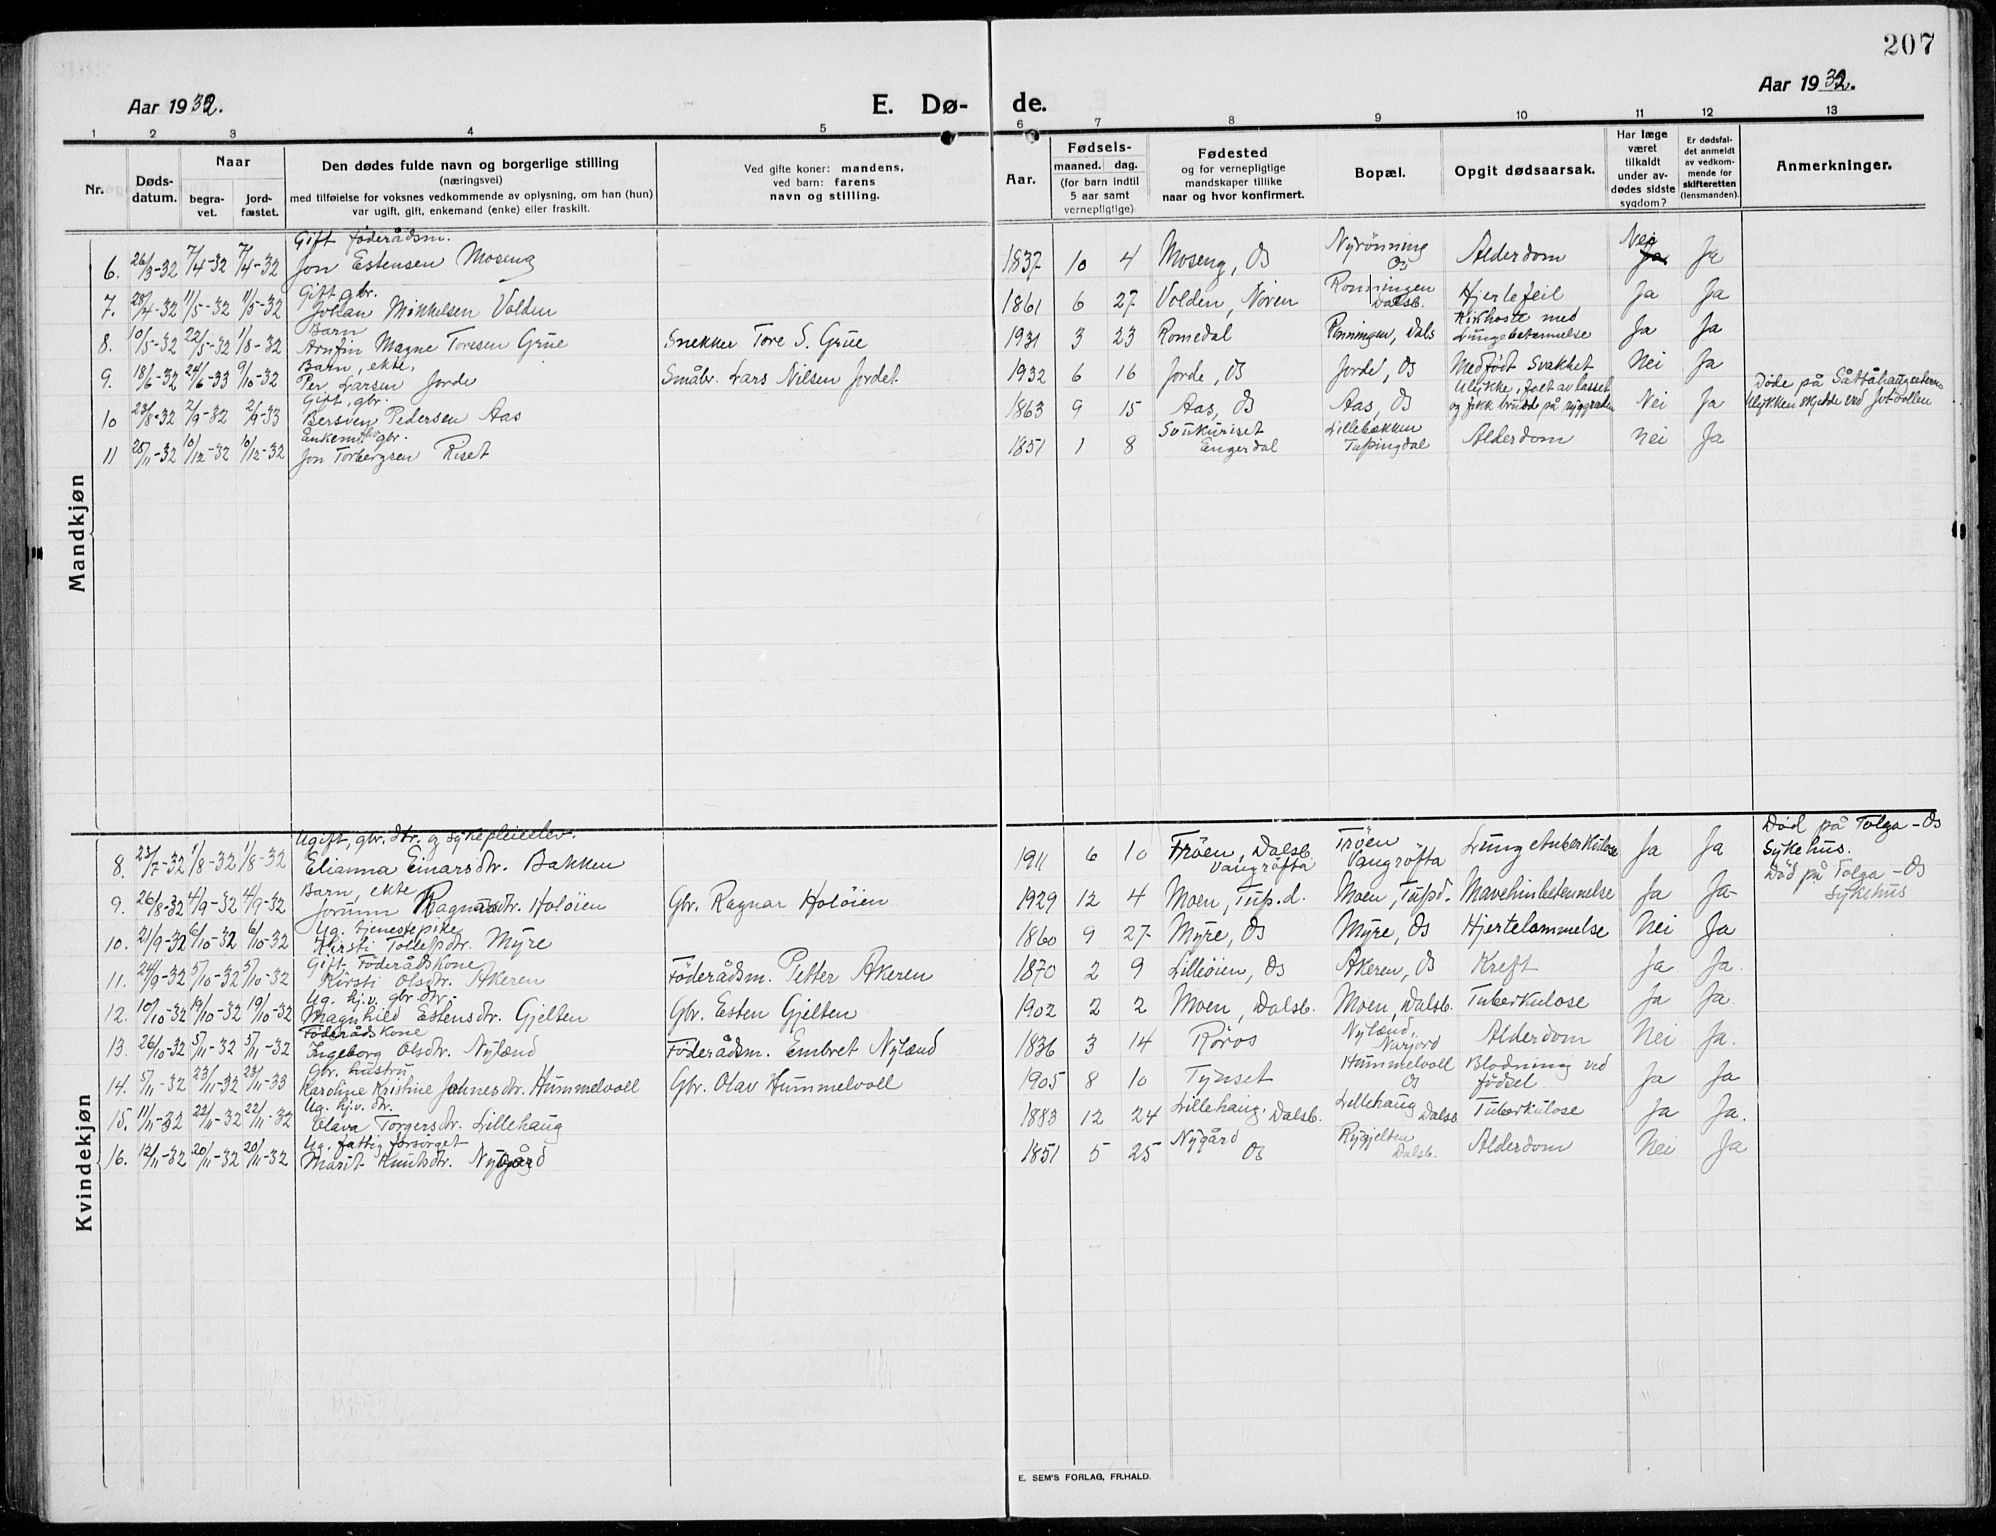 207
Aar 1932.
E. Dø-
de.
Aar 1932.
1 2 3 4 5 6 7 8 9 10 11 12 13
Nr.
Døds-
datum.
Naar
begra-
vet.
jord-
fæstet.
Den dødes fulde navn og borgerlige stilling
(næringsvei)
med tilføielse for voksnes vedkommende av oplysning, om han (hun)
var ugift, gift, enkemand (enke) eller fraskilt.
Ved gifte koner: mandens,
ved barn: farens
navn og stilling.
Aar.
Fødsels-
maaned. dag.
(for barn indtil
5 aar samt
vernepligtige)
Fødested
og for vernepligtige
mandskaper tillike
naar og hvor konfirmert.
Bopæl.
Opgit dødsaarsak.
Har læge
været
tilkaldt
under av-
dødes sidste
sygdom?
Er dødsfal-
det anmeldt
av vedkom-
mende for
skifteretten
(lensmanden).
Anmerkninger.
Mandkjøn
Gift föderådsm. Nyrönning Nei
6. 26/3-32 7/4-32 7/4-32 Jon Estensen Moseng 1837 10 4 Moseng, Os Os Alderdom Ja Ja
Gift, gbr. Ronningen
7. 28/4-32 11/5-32 11/5-32 Johan Mikkelsen Volden 1861 6 27 Volden, Nören Dalsb. Hjertefeil Ja Ja
Barn Kikhoste med
8. 10/5-32 22/5-32 1/8-32 Arnfin Magne Toresen Grue Snekker Tore S. Grue 1931 3 23 Romedal Rönningen, Dals Lungebetennelse Ja Ja
Barn, ekte,
9. 18/6-32 24/6-33 9/10-32 Per Larsen Jorde Småbr. Lars Nilsen Jordet 1932 6 16 Jorde, Os Jorde, Os Medfödt Svakhet Nei Ja
Gift, gbr. Ulykke, falt av lasset Döde på Såttåhaugseteren
10 23/8-32 2/9-32 2/9-33 Bersven Pedersen Aas 1863 9 15 Aas, Os Aas, Os og fikk brudd på ryggraden Nei Ja Ulykken skjedde ved
Enkem. gbr. Lillebækken
11 28/11-32 10/12-32 10/12-32 Jon Torbergsen Riset 1851 1 8 Engerdal Tufsingdal Alderdom Nei Ja
Kvindekjøn
Ugift, gbr. dtr. og sykepleieelev. Tröen Död på Tolga-Os
8. 23/7-32 1/8-32 1/8-32 Elianna Einarsdtr. Bakken 1911 6 10 Fröen, Dalsb. Vangröfta Vangröfta Lungetuberkulose Ja Ja Sykehus.
Barn, ekte Död på Tolga-Os
9. 26/8-32 4/9-32 4/9-32 Jorunn Ragnarsdtr. Holöien Gbr. Ragnar Holöien 1929 12 4 Moen, Tufs.d. Moen, Tufsd. Mavehinbetennelse Ja Ja- Sykehus
Ug. tjenestepike
10. 21/9-32 6/10-32 6/10-32 Kirsti Tollefsdtr. Myre 1860 9 27 Myre, Os Myre, Os Hjertelammelse Nei Ja
Gift Föderådskone
11. 24/9-32 5/10-32 5/10-32 Kirsti Olsdtr. Akeren Föderådsm. Petter Akeren 1870 2 9 Lilleöien, Os Akeren, Os Kreft Ja Ja.
Ug. hj.v. gbr dtr.
12. 10/10-32 19/10-32 19/10-32 Magnhild Estensdtr. Gjelten Gbr. Esten Gjelten 1902 2 2 Moen, Dalsb. Moen, Dalsb. Tuberkulose Ja Ja.
Föderådskone Nylænd,
13. 26/10-32 5/11-32 5/11-32 Ingeborg Olsdtr. Nylænd Föderådsm. Embret Nylænd 1836 3 14 Röros Narjord Alderdom Nei Ja.
Gbr. hustru Hummelvoll Blødning ved
14. 5/11-32 23/11-32 23/11-33 Karoline Kristine Johnesdtr. Hummelvoll Gbr. Olav Hummelvoll 1905 8 10 Tynset Os födsel Ja Ja
Ug. hj.v. dtr. Lillehaug
15. 11/11-32 22/11-32 22/11-32 Elava Torgersdtr. Lillehaug 1883 12 24 Lillehaug, Dalsb. Dalsb Tuberkulose Ja Ja.
Ug. fattig forsörget Nygård Rygjelten
16. 12/11-32 20/11-32 20/11-32 Marit Knutsdtr. Nygård 1851 5 25 Os Dalsb. Alderdom Nei Ja
E. SEM'S FORLAG, FR.HALD.